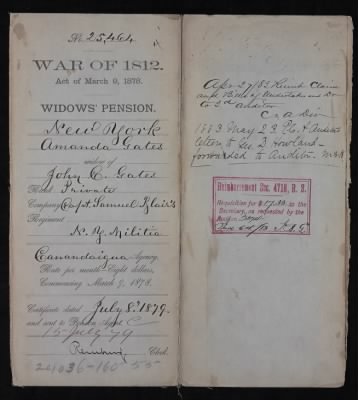 No. 25,464
WAR OF 1812.
Act of March 9, 1878.
WIDOWS' PENSION.
New York
Amanda Gates
widow of
John C. Gates
Rank Private
Company Capt. Samuel Blair's
Regiment
N. Y. Militia
Canandaigua Agency.
Rate per month Eight dollars,
Commencing March 9, 1878.
Certificate dated July 8, 1879.
and sent to Pension Agent
15 July 79
Clerk.
24036-160 55
Apr 27/83
to 2d auditor
C n a Div
1883 May 23
letter to Geo. D. Howland
forwarded to Auditor.
Reimbursement Sec. 4718, R. S.
Requisition for $ to the
Secretary, as requested by the